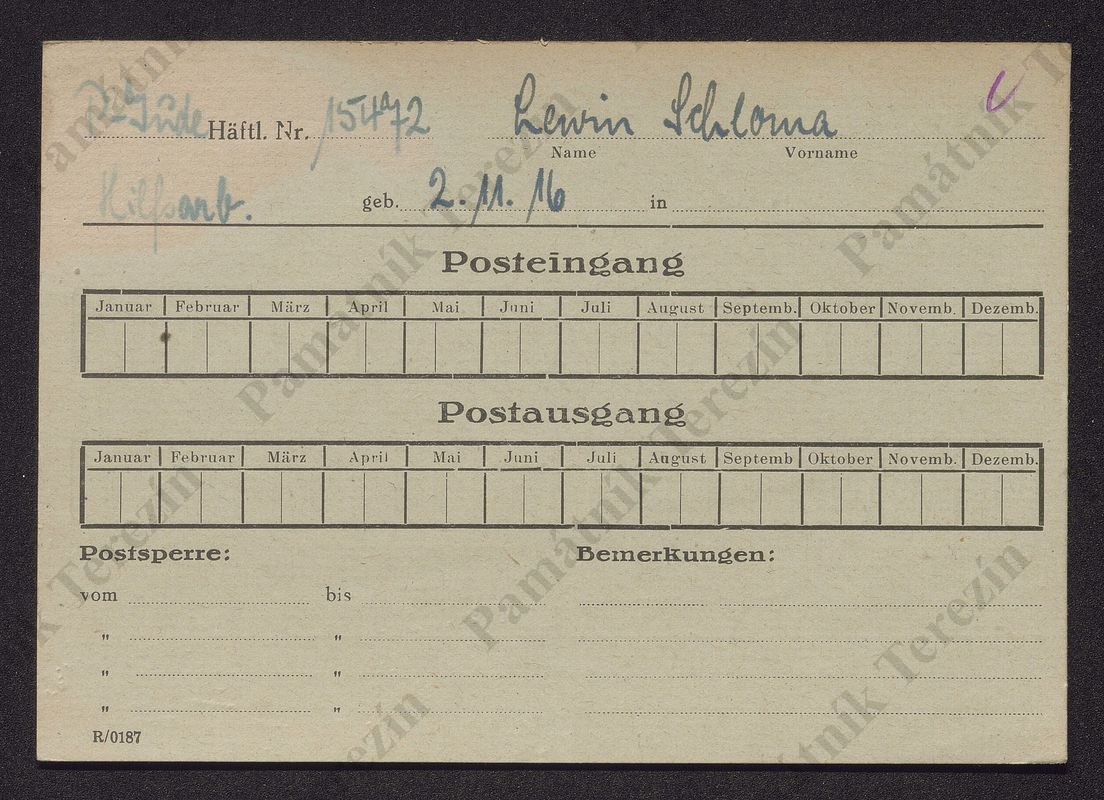 Jude Häftl. Nr. 15472 Lewin Schloma
Name Vorname
Hilfsarb. geb. 2. 11. 16 in
Posteingang
Januar Februar März April Mai Juni Juli August Septemb. Oktober Novemb. Dezemb.
Postausgang
Januar Februar März April Mai Juni Juli August Septemb Oktober Novemb. Dezemb.
Postsperre: Bemerkungen:
vom bis
" "
" "
" "
R/0187
Památník Terezín